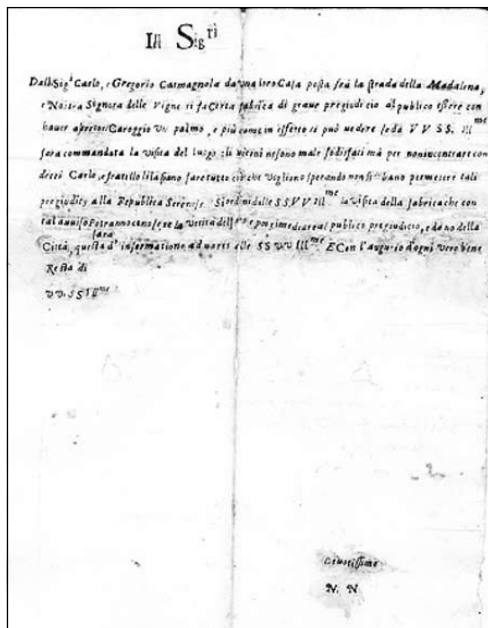 Ill Sig.ri
Dalli Sig.i Carlo, e Gregorio Carmagnola da una loro Casa posta frà la strada della Madalena,
e Nostra Signora delle Vigne si fa certa fabrica di graue pregiudicio al publico essere con
hauer apreso in Caroggio vn palmo, e più come in effetto si può uedere se da V V SS. Ill.me
sara commandata la visita del luogo gli uicini ne sono male sodisfati mà per non incontrare con
detti Carlo, e fratello li lasiano fare tutto ciò che vogliono sperando non si bano permettere tali
pregiudicij alla Republica Serenis. Si ordini dalle SS. V V Ill.me la visita della fabrica che con
tal auuiso Potranno conoscere la verità del e poi rimediare al publico pregiudicio, e dano della
Città, questa sarà d' informatione ad uoti delle SS VV Ill.me E Con l'augurio d'ogni vero bene
Resta di
VV. SS Ill.me
Deuotissimo
N. N